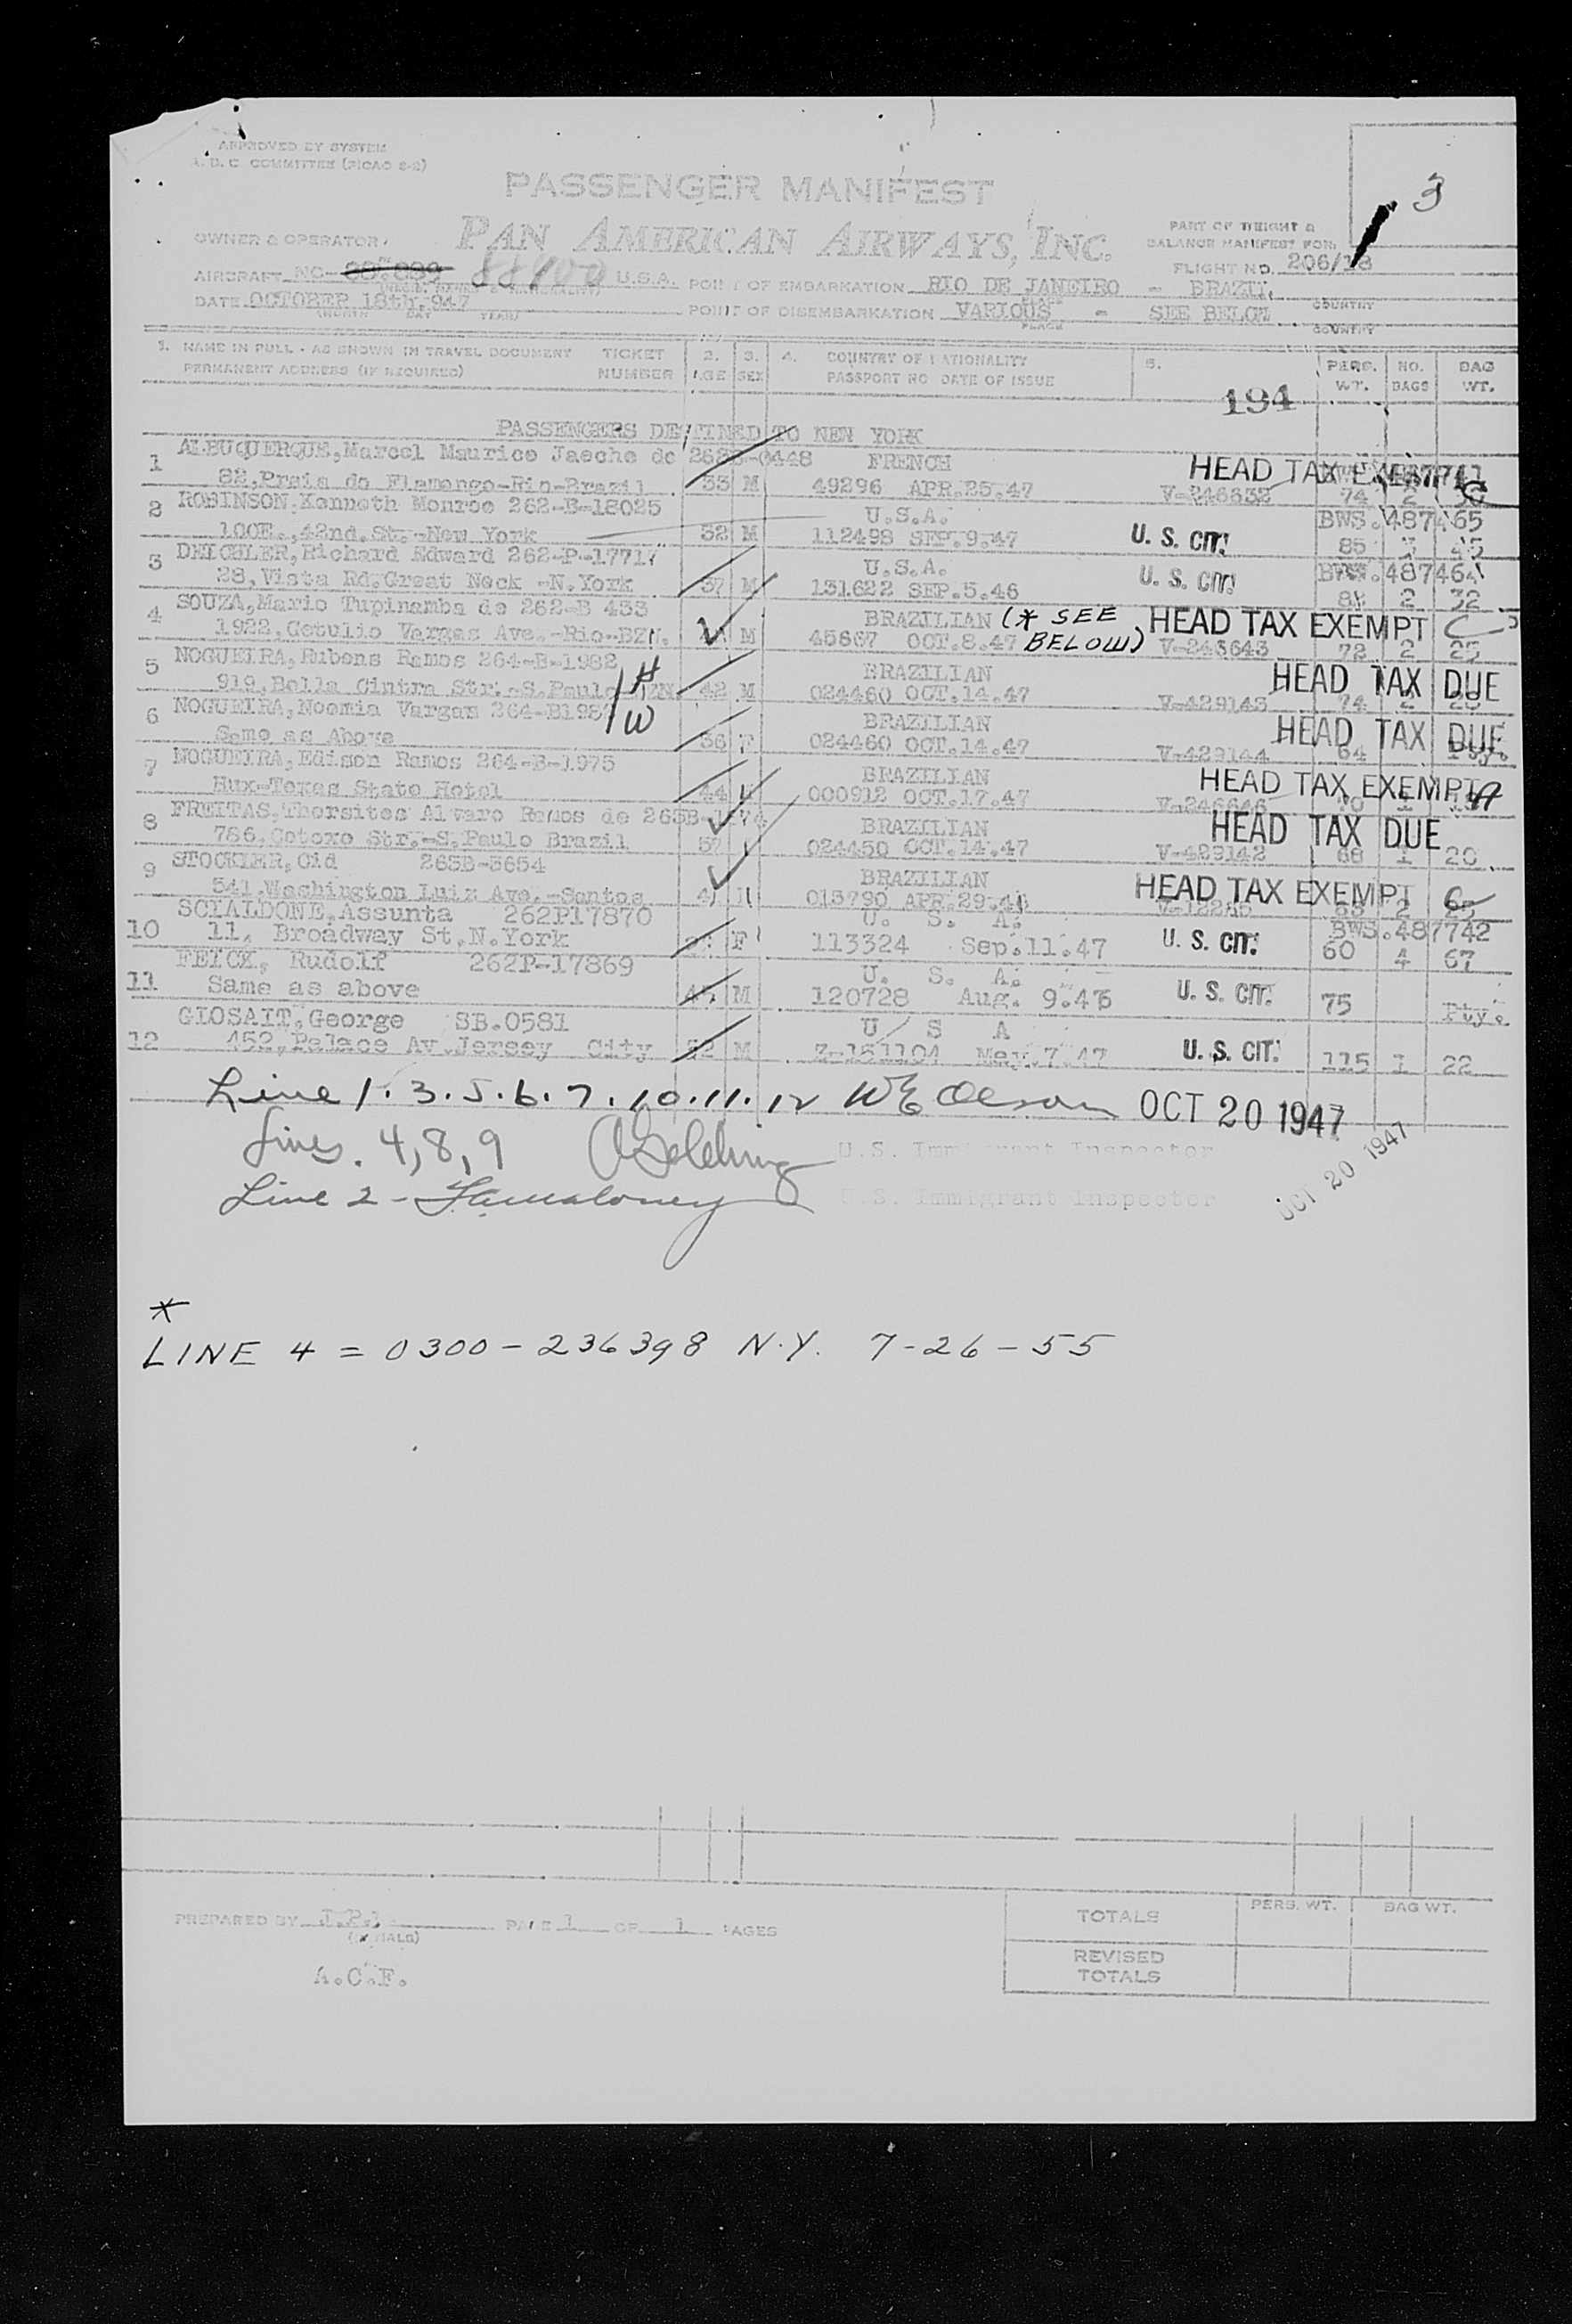 APPROVED BY SYSTEM
A. D. C. COMMITTEE (PICAO 2-2)
3
PASSENGER MANIFEST
OWNER & OPERATOR: PAN AMERICAN AIRWAYS, INC.
PART OF WEIGHT & BALANCE MANIFEST FOR:
FLIGHT NO. 206/18
AIRCRAFT NC- U.S.A. POINT OF EMBARKATION RIO DE JANEIRO - BRAZIL
COUNTRY
DATE OCTOBER 18th, 947 POINT OF DISEMBARKATION VARIOUS - SEE BELOW
(MONTH DAY YEAR) PLACE COUNTRY
1. NAME IN FULL - AS SHOWN IN TRAVEL DOCUMENT TICKET 2. 3. 4. COUNTRY OF NATIONALITY 5. PERS. NO. BAG
PERMANENT ADDRESS (IF REQUIRED) NUMBER AGE SEX PASSPORT NO DATE OF ISSUE WT. BAGS WT.
194
PASSENGERS DESTINED TO NEW YORK
1 ALBUQUERQUE, Marcel Maurice Jaeche de 262B-0448 FRENCH HEAD TAX EXEMPT
82, Praia do Flamengo-Rio-Brazil 33 M 49296 APR.25.47 V-246632 74 2
2 ROBINSON, Kenneth Monroe 262-B-18025 U.S.A. BWS.487465
100E., 42nd. St.-New York 32 M 112498 SEP.9.47 U. S. CIT. 85
3 Richard Edward 262-P-17717 U.S.A. BWS.487464
28, Vista Rd. Great Neck -N.York 37 M 131622 SEP.5.46 U. S. CIT. 2 32
4 SOUZA, Mario Tupinamba de 262-B 433 BRAZILIAN (* SEE BELOW) HEAD TAX EXEMPT
1922, Getulio Vargas Ave.-Rio-BZN. M 45867 OCT.8.47 V-243643 72 2 25
5 NOGUEIRA, Rubens Ramos 264-B-1982 H BRAZILIAN HEAD TAX DUE
919, Bella Cintra Str.-S.Paulo BZN. 42 M 024460 OCT.14.47 V-429143 74 2
6 NOGUEIRA, Noemia Vargas 264-B1982 W BRAZILIAN HEAD TAX DUE
Same as Above 36 F 024460 OCT.14.47 V-429144 64
7 NOGUEIRA, Edison Ramos 264-B-1975 BRAZILIAN HEAD TAX EXEMPT
Hux-Texas State Hotel 44 000912 OCT.17.47 V-246646
8 FREITAS, Thersites Alvaro Ramos de BRAZILIAN HEAD TAX DUE
786, Cotoxo Str.-S.Paulo Brazil 024450 OCT.14.47 V-429142 68 1 20
9 STOCKLER, Cid 265B-3654 BRAZILIAN HEAD TAX EXEMPT
541, Washington Luiz Ave.-Santos 013790 APR.29.46 2
10 SCIALDONE, Assunta 262P17870 U. S. A. BWS.487742
11, Broadway St.N.York F 113324 Sep.11.47 U. S. CIT. 60 4 67
11 FEICK, Rudolf 262P-17869 U. S. A.
Same as above M 120728 Aug. 9.46 U. S. CIT. 75 Pty.
12 GLOSAIT, George SB.0581 U S A
452, Palace Av. Jersey City M Z-151104 May.7.47 U. S. CIT. 115 1 22
Line 1. 3. 5. 6. 7. 10. 11. 12 W E Olson OCT 20 1947
Lines. 4, 8, 9 U.S. Immigrant Inspector
OCT 20 1947
Line 2 - U.S. Immigrant Inspector
*
LINE 4 = 0300-236398 N.Y. 7-26-55
PREPARED BY PAGE 1 OF 1 PAGES
(INITIALS)
A.C.F.
PERS. WT. BAG WT.
TOTALS
REVISED TOTALS